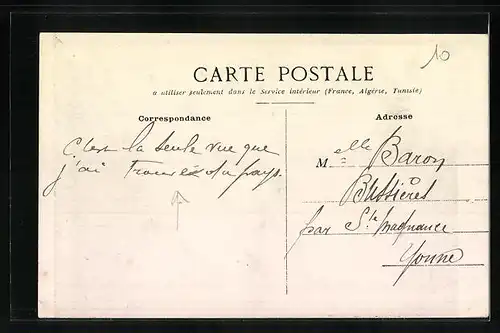 10
CARTE POSTALE
a utiliser seulement dans le Service intérieur (France, Algérie, Tunisie)
Correspondance
Adresse
C'est la seule vue que
j'ai trouvée du pays.
Melle Baron
Bussières
par Ste Magnance
Yonne